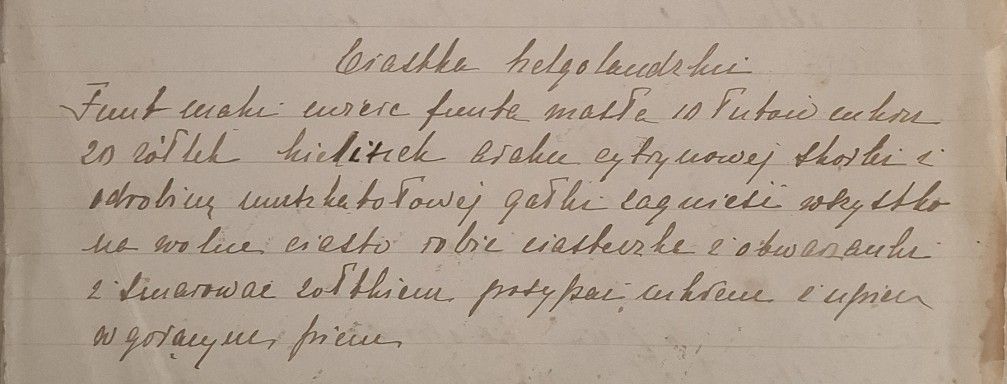 Ciastka helgolandzki
Funt maki cwierc funta masła 10 łutów cukru
20 żółtek kieliszek araku cytrynowej skorki i
odrobiną muszkatołowej gałki zagnieść wszystko
na wolne ciasto robic ciasteczka i obwarzanki
i smarowac żołtkiem posypać cukrem i upiec
w gorącym piecu